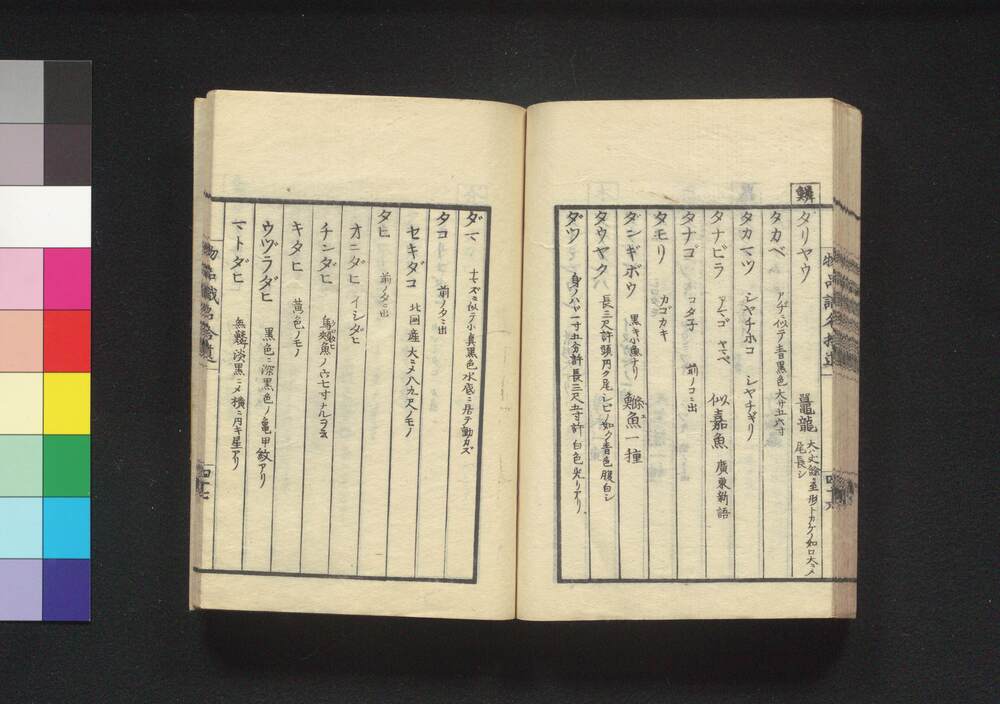 鱗
ダリヤウ 鼉龍 大ハ丈餘ニ至形トカゲノ如口大ニ〆尾長シ
タカベ アヂニ似テ青黒色大サ五六寸
タカマツ シヤチホコ シヤチギリ
タナビラ アモゴ ヤマベ 似嘉魚 廣東新語
タナゴ コタ子 前ノコニ出
タモリ カゴカキ
ダンギボウ 黒キ小魚ナリ 魚一種
タウヤク 長三尺許頭円ク尾シビノ如ク青色腹白シ
ダツ 身ノハヤ一寸五分許長三尺五寸許白色光リアリ
物品識名拾遺
四十六
ダマ ナマズニ似テ小真黒色水底ニ居テ動カズ
タコ 前ノタニ出
セキダコ 北国産大ニ〆八九尺ノモノ
タヒ 前ノタニ出
オニダヒ イシダヒ
チンダヒ 烏頰魚ノ六七寸ナルヲ云
キタヒ 黄色ノモノ
ウヅラダヒ 黒色ニ深黒色ノ亀甲紋アリ
マトダヒ 無鱗淡黒ニ〆横ニ円キ星アリ
物品識名拾遺
四十七